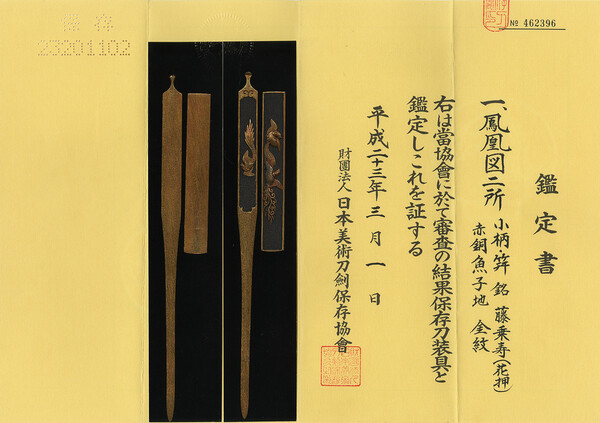 № 462396
鑑定書
一、鳳凰図二所 小柄・笄 銘 藤乗寿(花押)
赤銅魚子地 金紋
右は當協會に於て審査の結果保存刀装具と
鑑定しこれを証する
平成二十三年三月一日
財團法人 日本美術刀劍保存協會
保存
23201102